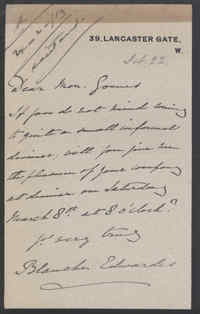 39, LANCASTER GATE,
W.
Feb. 22.
Dear Mrs.
If you do not mind coming
to quite a small informal
dinner, will you give me
the pleasure of your company
at dinner on Saturday
March 8th at 8 o'clock?
Yrs very truly
Blanche Edwardes